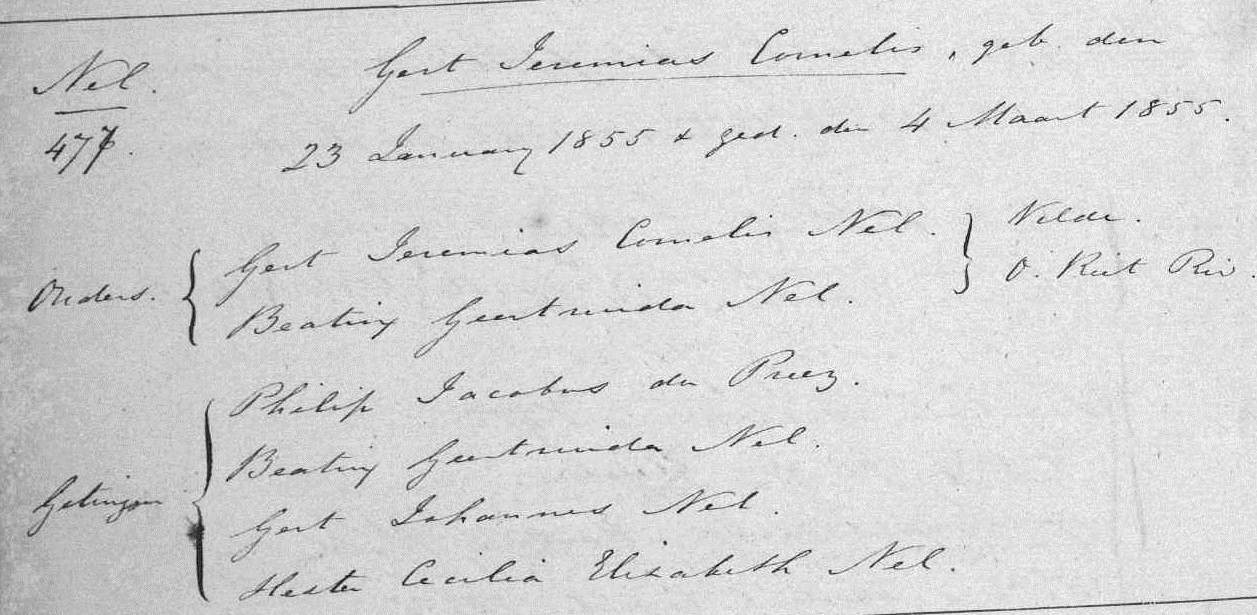 Nel. Gert Jeremias Cornelis, geb. den
477. 23 January 1855 & ged. den 4 Maart 1855.
Ouders. Gert Jeremias Cornelis Nel. Velde.
Beatrix Geertruida Nel. O. Riet Riv
Philip Jacobus du Preez.
Beatrix Geertruida Nel.
Getuigen Gert Johannes Nel.
Hester Cecilia Elisabeth Nel.